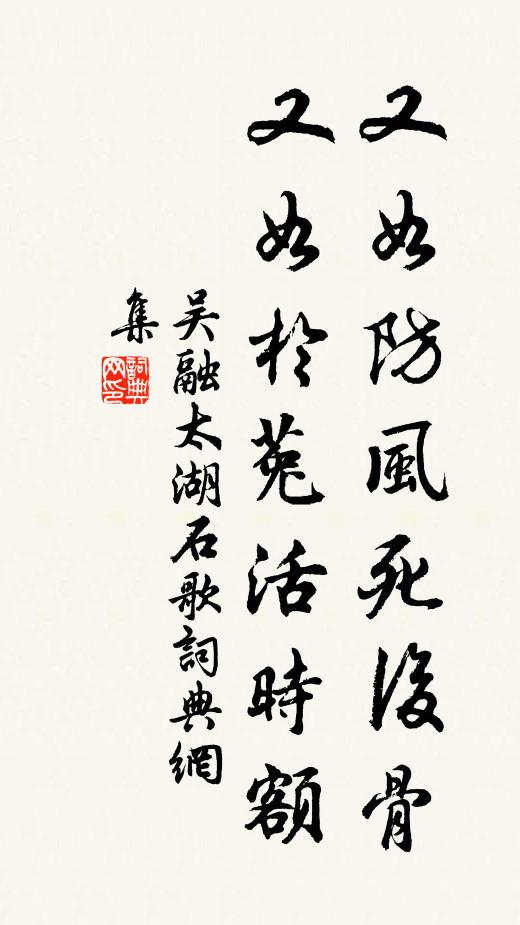 又如防風死後骨
又如於菟活時額
吴融太湖石歌詞典網
集
詞典
网印